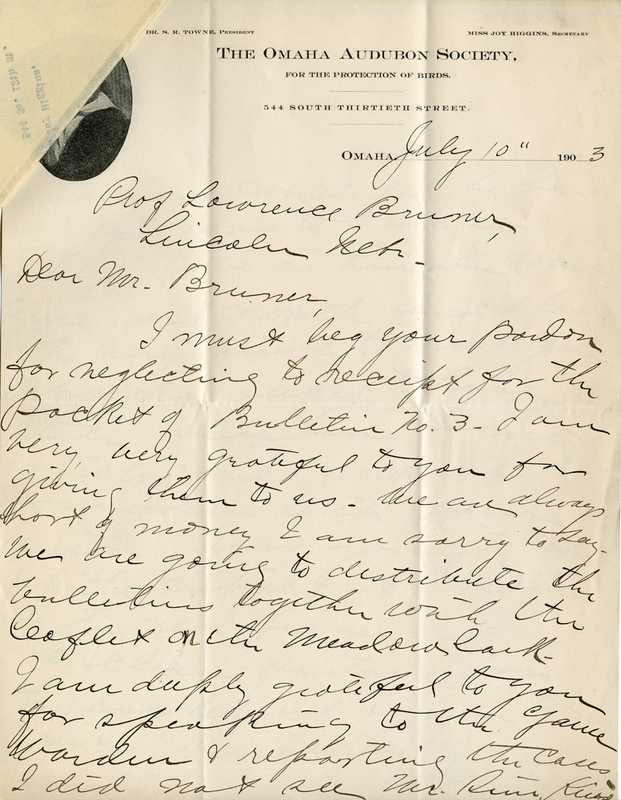 DR. S. R. TOWNE, PRESIDENT
MISS JOY HIGGINS, SECRETARY
THE OMAHA AUDUBON SOCIETY,
FOR THE PROTECTION OF BIRDS.
544 SOUTH THIRTIETH STREET.
OMAHA, July 10" 1903
Prof Lawrence Bruner,
Lincoln Nebr-
Dear Mr. Bruner,
I must beg your pardon
for neglecting to receipt for the
packet of Bulletin No. 3- I am
very very grateful to you for
giving them to us - We are always
short of money I am sorry to say-
We are going to distribute the
bulletins together with the
leaflet on the Meadowlark-
I am deeply grateful to you
for speaking to the Game
Warden & reporting the cases
I did not see Mr.